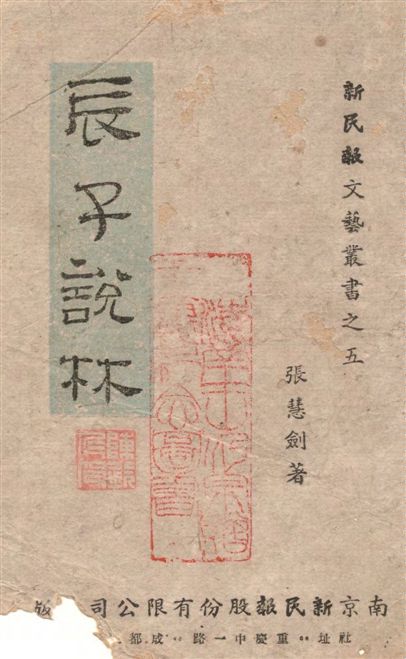 新民報文藝叢書之五
張慧劍著
辰子說林
南京新民報股份有限公司版
社址：重慶中一路：成都